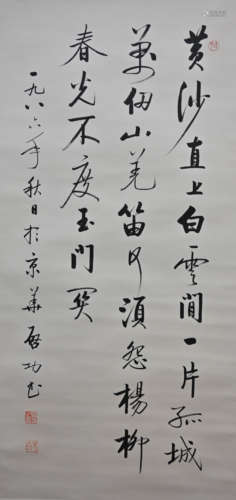 黄沙直上白雲間一片孤城
萬仞山羌笛何須怨楊柳
春光不度玉門關
一九八六年秋日於京華啟功書